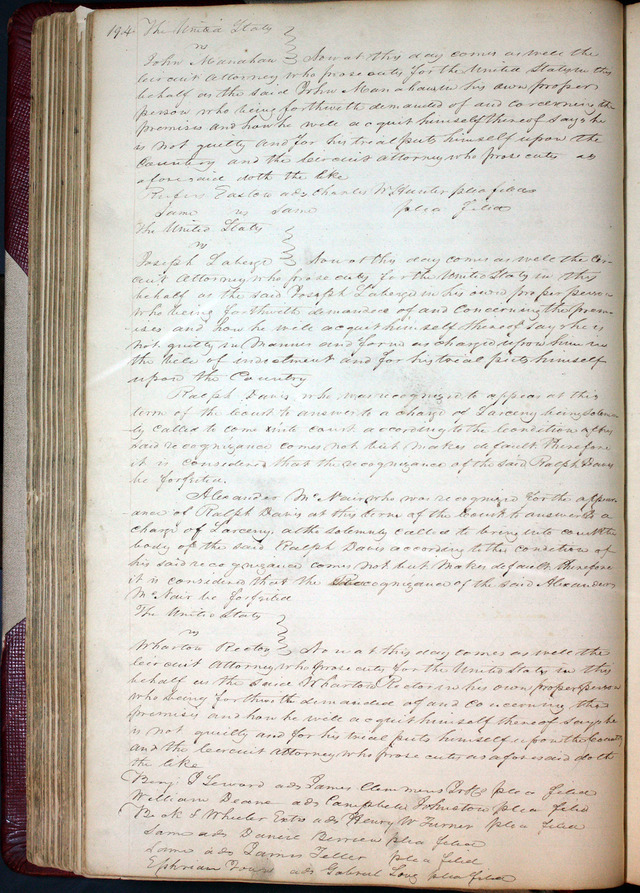 194 The United States
vs
John Manahan } Now at this day comes as well the
Circuit Attorney who prosecutes for the United States in this
behalf as the said John Manahan in his own proper
person who being forthwith demanded of and concerning the
premises and how he will acquit himself thereof says he
is not guilty and for his trial puts himself upon the
Country and the Circuit Attorney who prosecutes as
aforesaid doth the like
Rufus Easton ads Charles W. Hunter plea filed
Same vs Same plea filed
The United States
vs
Joseph Laberge } Now at this day comes as well the Cir-
cuit Attorney who prosecutes for the United States in this
behalf as the said Joseph Laberge in his own proper person
who being forthwith demanded of and concerning the prem-
-ises and how he will acquit himself thereof says he is
not guilty in manner and form as charged upon him in
the bill of indictment and for his trial puts himself
upon the Country
Ralph Davis who was recognized to appear at this
term of the Court to answer to a charge of Larceny being solemn-
-ly called to come into court according to the condition of his
said recognizance comes not but makes default therefore
it is considered that the recognizance of the said Ralph Davis
be forfeited.
Alexander McNair who was recognized for the appear-
-ance of Ralph Davis at this term of the Court to answer to a
charge of Larceny, at the solemnly called to bring into court the
body of the said Ralph Davis according to the condition of
his said recognizance comes not but makes default therefore
it is considered that the recognizance of the said Alexander
McNair be forfeited
The United States
vs
Wharton Rector } Now at this day comes as well the
Circuit Attorney who prosecutes for the United States in this
behalf as the said Wharton Rector in his own proper person
who being forthwith demanded of and concerning the
premises and how he will acquit himself thereof says he
is not guilty and for his trial puts himself upon the Country
and the Circuit Attorney who prosecutes as aforesaid doth
the like
Benj. J Seward ads James Clemmens plea filed
William Deane ads Campbell Johnston plea filed
B & S Wheeler Exrs ads Henry W Turner plea filed
Same ads Daniel Berrien plea filed
Same ads James Teller plea filed
Ephriam Town ads Gabriel Long plea filed